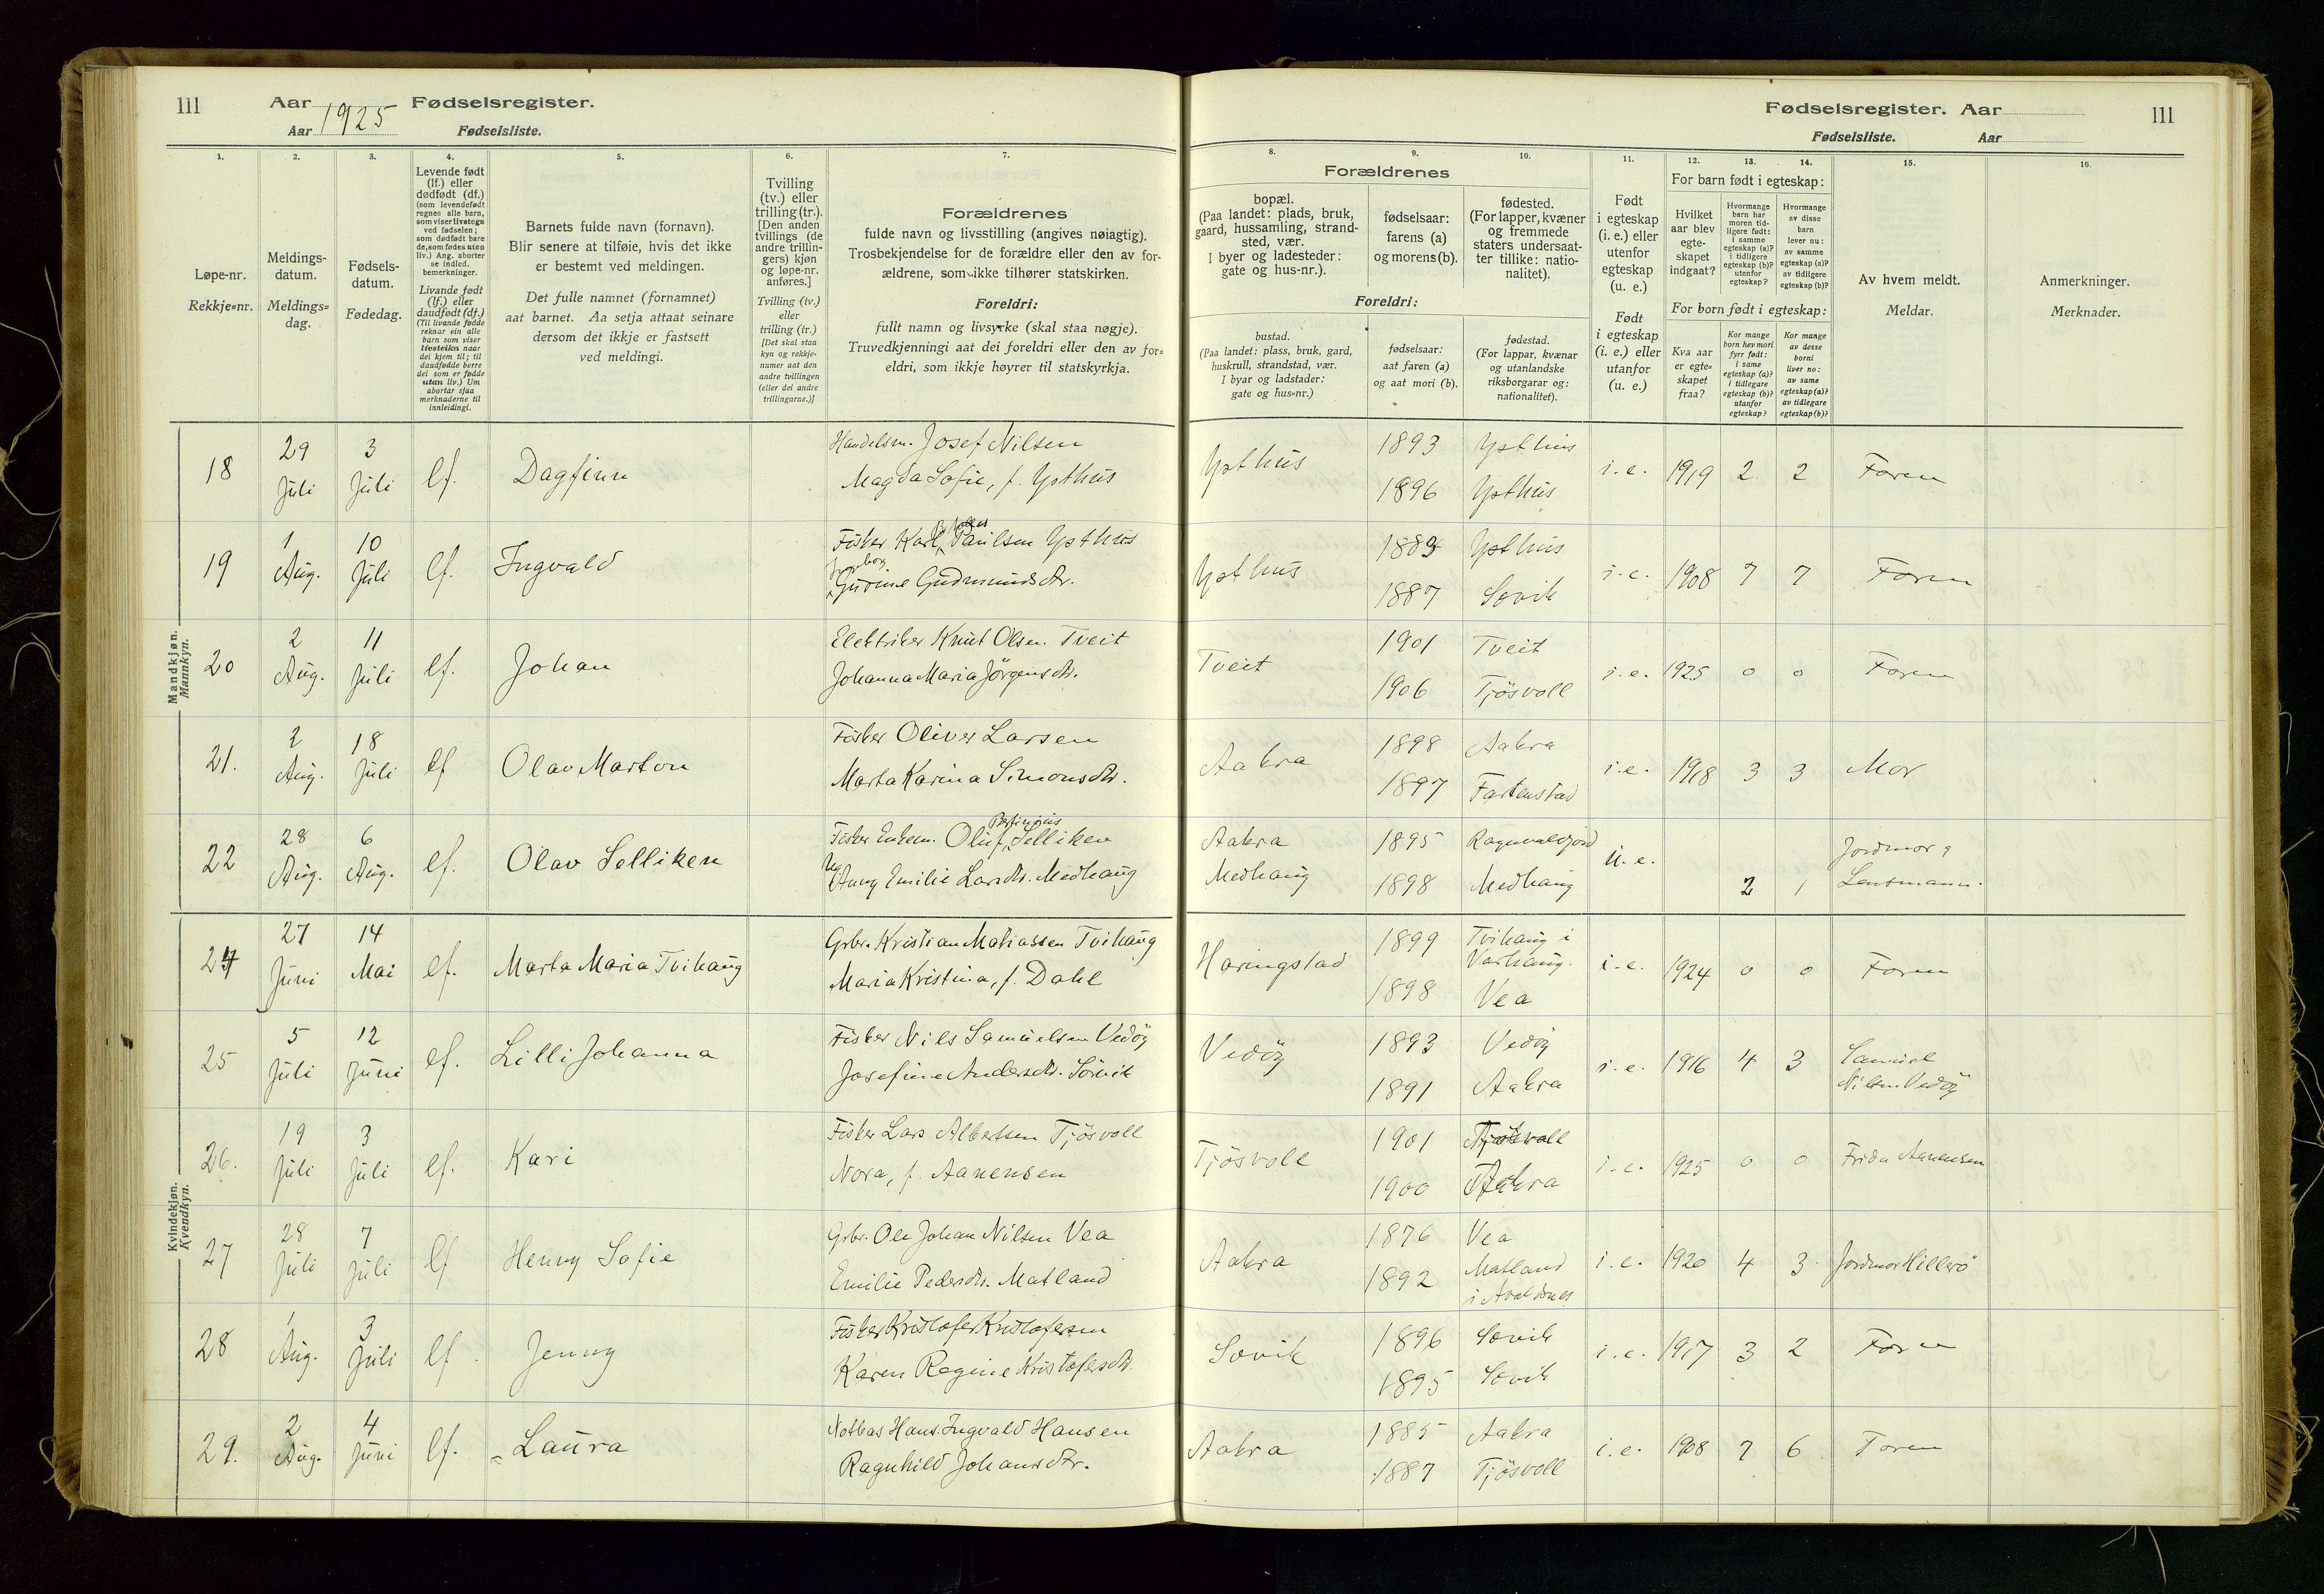 111
Aar 1925 Fødselsregister.
Aar Fødselsliste.
Fødselsregister. Aar
Fødselsliste. Aar
111
1.
Løpe-nr.
Rekkje=nr.
2.
Meldings-
datum.
Meldings=
dag.
3.
Fødsels-
datum.
Fødedag.
4.
Levende født
(lf.) eller
dødfødt (df.)
(som levendefødt
regnes alle barn,
som viser livstegn
ved fødselen;
som dødfødt bare
de, som fødes uten
liv.) Ang. aborter
se indled.
bemerkninger.
Livande født
(lf.) eller
daudfødt (df.)
(Til livande fødde
reknar ein alle
barn som viser
livsteikn naar
dei kjem til; til
daudfødde berre
dei som er fødde
utan liv.) Um
abortar sjaa
merknaderne til
innleidingi.
5.
Barnets fulde navn (fornavn).
Blir senere at tilføie, hvis det ikke
er bestemt ved meldingen.
Det fulle namnet (fornamnet)
aat barnet. Aa setja attaat seinare
dersom det ikkje er fastsett
ved meldingi.
6.
Tvilling
(tv.) eller
trilling (tr.).
[Den anden
tvillings (de
andre trillin-
gers) kjøn
og løpe-nr.
anføres.]
Tvilling (tv.)
eller
trilling (tr.)
[Det skal staa
kyn og rekkje-
numer aat den
andre tvillingen
(eller dei andre
trillingarne.)]
7.
Forældrenes
fulde navn og livsstilling (angives nøiagtig).
Trosbekjendelse for de forældre eller den av for-
ældrene, som ikke tilhører statskirken.
Foreldri:
fullt namn og livsyrke (skal staa nøgje).
Truvedkjenningi aat dei foreldri eller den av for=
eldri, som ikkje høyrer til statskyrkja.
Forældrenes
8.
bopæl.
(Paa landet: plads, bruk,
gaard, hussamling, strand-
sted, vær.
I byer og ladesteder:
gate og hus-nr.).
9.
fødselsaar:
farens (a)
og morens (b).
10.
fødested.
(For lapper, kvæner
og fremmede
staters undersaat-
ter tillike: natio-
nalitet).
Foreldri:
bustad.
(Paa landet: plass, bruk, gard,
huskrull, strandstad, vær.
I byar og ladstader:
gate og hus=nr.)
fødselsaar:
aat faren (a)
og aat mori (b).
fødestad.
(For lappar, kvænar
og utanlandske
riksborgarar og:
nationalitet).
11.
Født
i egteskap
(i. e.) eller
utenfor
egteskap
(u. e.)
Født
i egteskap
(i. e.) eller
utanfor
(u. e.)
12. 13. 14.
For barn født i egteskap:
Hvilket
aar blev
egte-
skapet
indgaat?
Hvormange
barn har
moren tid-
ligere født:
i samme
egteskap (a)?
i tidligere
egteskap (b)?
utenfor
egteskap?
Hvormange
av disse
barn
lever nu:
av samme
egteskap (a)?
av tidligere
egteskap (b)?
For born født i egteskap:
Kva aar
er egte=
skapet
fraa?
Kor mange
born hev mori
fyrr født:
i same
egteskap (a)?
i tidlegare
egteskap (b)?
utanfor
egteskap?
Kor mange
av desse
borni
liver no:
av same
egteskap (a)?
av tidlegare
egteskap (b)?
15.
Av hvem meldt.
Meldar.
16.
Anmerkninger.
Merknader.
Mandkjøn.
Mannkyn.
18 29 Juli 3 Juli lf. Dagfinn Handelsm. Josef Nilsen Ypthus 1893 Ypthus i. e. 1919 2 2 Faren
Magda Sofie, f. Ypthus 1896 Ypthus
19 1 Aug. 10 Juli lf. Ingvald Fisker Karl Paulsen Ypthus Ypthus 1883 Ypthus i. e. 1908 7 7 Faren
Gurine Gudmundsdtr. 1887 Sævik
20 2 Aug. 11 Juli lf. Johan Elektriker Knut Olsen Tveit Tveit 1901 Tveit i. e. 1925 0 0 Faren
Johanna Maria Jörgensdtr. 1906 Tjösvoll
21. 2 Aug. 18 Juli lf Olav Marton Fisker Oliver Larsen Aakra 1898 Aakra i. e. 1918 3 3 Mor
Marta Karina Simonsdtr. 1897
22 28 Aug. 6 Aug. lf. Olav Selliken Fisker Enkem. Oluf Selliken Aakra 1895 u. e. Jordmor &
Emilie Larsdtr. Medhaug Medhaug 1898 Medhaug 2 1 Lensmann.
Kvindekjøn.
Kvendkyn.
24 27 Juni 14 Mai lf. Marta Maria Tvihaug Grbr. Kristian Matiassen Tvihaug Haringstad 1899 Tvihaug i
Varhaug. i. e. 1924 0 0 Faren
Maria Kristina, f. Dahl 1898 Vea
25 5 Juli 12 Juni lf. Lilli Johanna Fisker Nils Samuelsen Vedöy Vedöy 1893 Vedöy i. e. 1916 4 3 Samuel
Josefine Andersdtr. Sörvik 1891 Aakra Nilsen Vedöy
26. 19 Juli 3 Juli lf. Kari Fisker Lars Albertsen Tjösvoll Tjösvoll 1901 Tjösvoll i. e. 1925 0 0 Frida Aanensen
Nora, f. Aanensen 1900 Aakra
27 28 Juli 7 Juli lf Henny Sofie Grbr. Ole Johan Nilsen Vea Aakra 1876 Vea i. e. 1920 4 3 Jordmor Hillerö
Emilie Pedersdtr. Matland 1892 Matland
i Avaldsnes
28 1 Aug. 3 Juli lf. Jenny Fisker Kristofer Kristofersen Sævik 1896 Sævik i. e. 1917 3 2 Faren
Karen Regine Kristofersdtr. 1895 Sævik
29. 2 Aug. 4 Juni lf. Laura Notbas Hans Ingvald Hansen Aakra 1885 Aakra i. e. 1908 7 6 Faren
Ragnhild Johansdtr. 1887 Tjösvoll